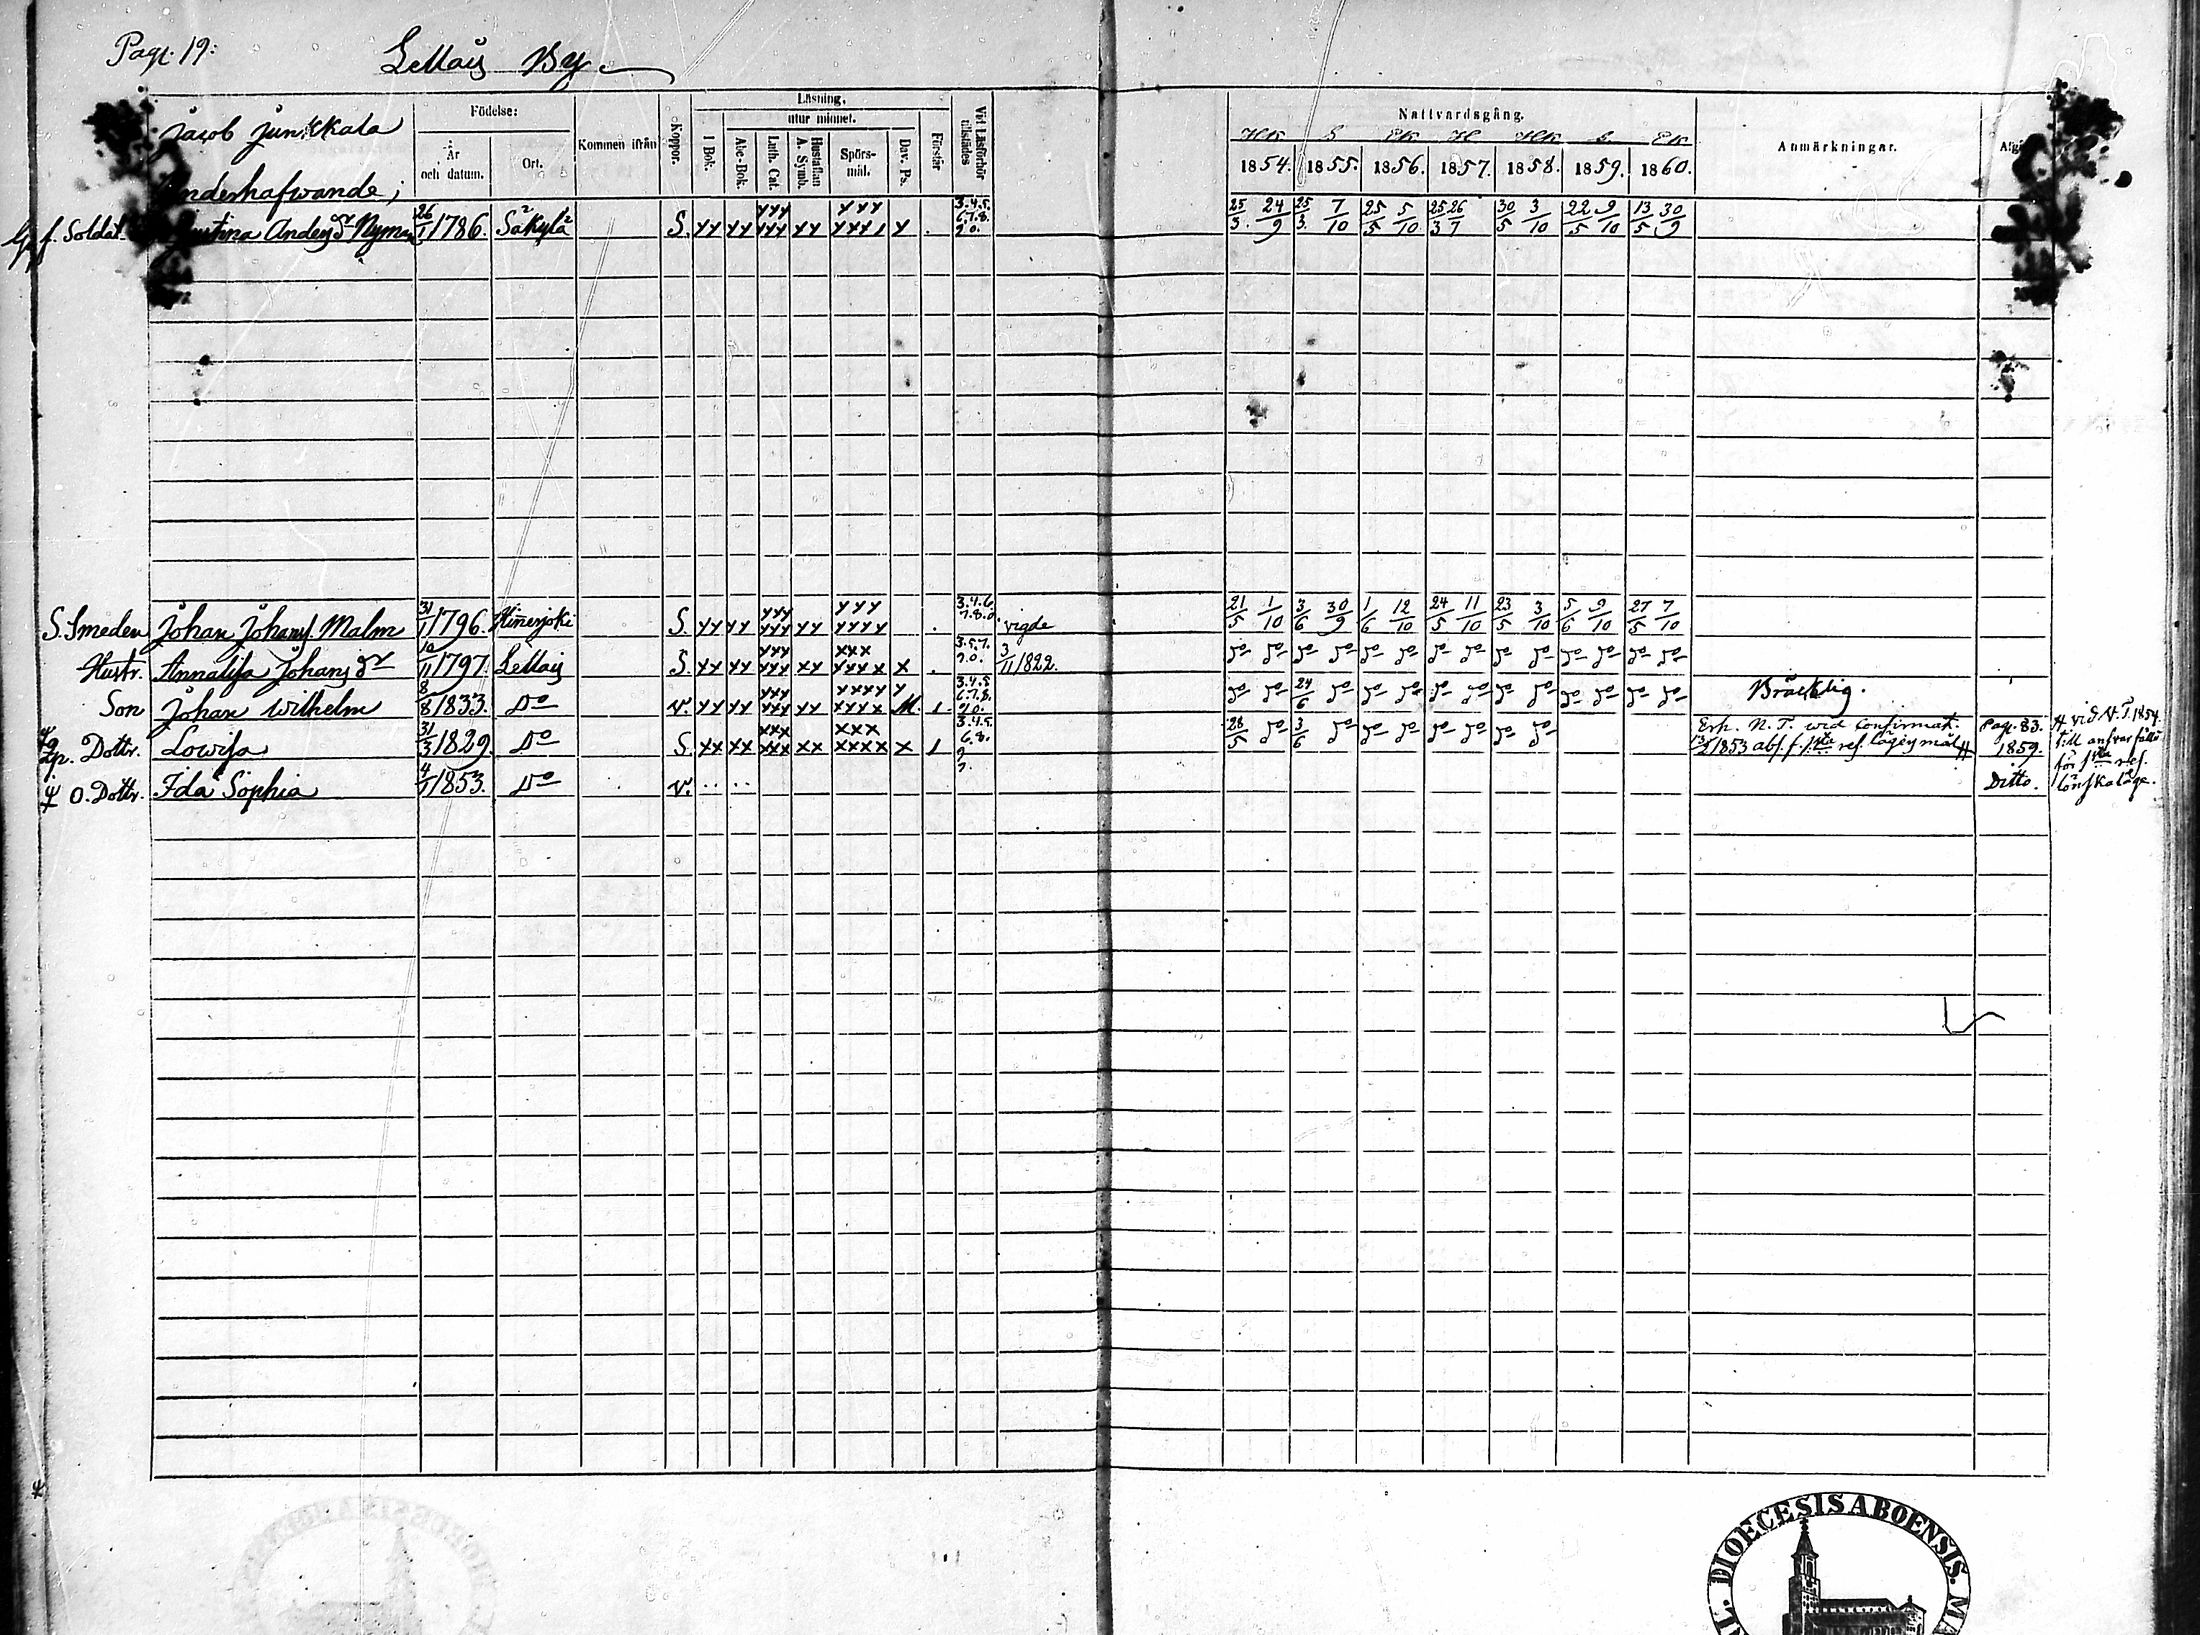 Page. 19:
Lellais By
Jacob Junkkala
Underhafwande;
Födelse:
År och datum.
Ort.
Kommen ifrån
Koppor.
Läsning.
utur minnet.
I Bok.
Abc-Bok.
Luth. Cat.
Hustaflan A. Symb.
Spörs-mål.
Dav. Ps.
Förstår
Vid Läsförhör tillstädes
Nattvardsgång.
HK S EK H HK S EK
1854. 1855. 1856. 1857. 1858. 1859. 1860.
Anmärkningar.
f. Soldat Anders dr Nyman 26/1 1786. Säkylä S. xx xx xxx xxx xx xxx xxx1 x . 3.4.5. 6.7.8. 9.0. 25/3. 24/9 25/3. 7/10 25/5 5/10 25/3 26/7 30/5 3/10 22/5 9/10 13/5 30/9
S. Smeden Johan Johans. Malm 31/1 1796. Hinerjoki S. xx xx xxx xxx xx xxx xxxx . 3.4.6. 7.8.0 vigde 21/5 1/10 3/6 30/9 1/6 12/10 24/5 11/10 23/5 3/10 5/6 9/10 27/5 7/10
Hustr. Annalisa Johans dr 10/11 1797. Lellais S. xx xx xxx xxx xx xxx xxxx x . 3.5.7. 9.0. 3/11 1822. do do do do do do do do do do do do do do
Son Johan Wilhelm 8/8 1833. Do v. xx xx xxx xxx xx xxxx xxxx x M. 1 3.4.5 6.7.8. 9.0. do do 24/6 do do do do do do do do do do do Bräcklig.
Dottr. Lowisa 31/3 1829. Do S. xx xx xxx xxx xx xxx xxxx x 1 3.4.5. 6.8. 9 28/5 do 3/6 do do do do do do do Erh. N. T. wid Confirmat. Pag. 83.
13/2 1853 abs. f. 1sta res. lägersmål # 1859.
O. Dottr. Ida Sophia 4/1 1853. Do v. .. .. 9. Ditto.
# vid V. T. 1854
till answar fälld
för 1sta res.
lönskaläge.
DIOECESIS ABOENSIS.